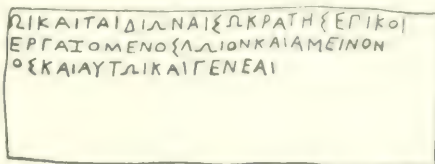 ΩΙΚΑΙΤΑΙΔΙΩΝΑΙΣΩΚΡΑΤΗΣΕΠΙΚΟΙ
ΕΡΓΑΖΟΜΕΝΟΣΛΩΙΟΝΚΑΙΑΜΕΙΝΟΝ
ΟΣΚΑΙΑΥΤΩΙΚΑΙΓΕΝΕΑΙ